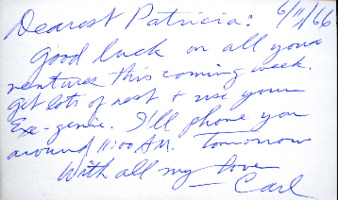 Dearest Patricia: 6/11/66
Good luck on all your
ventures this coming week.
get lots of rest & use your
Exe-genie. I'll phone you
around 11:00 A.M. tomorrow
With all my love
— Carl